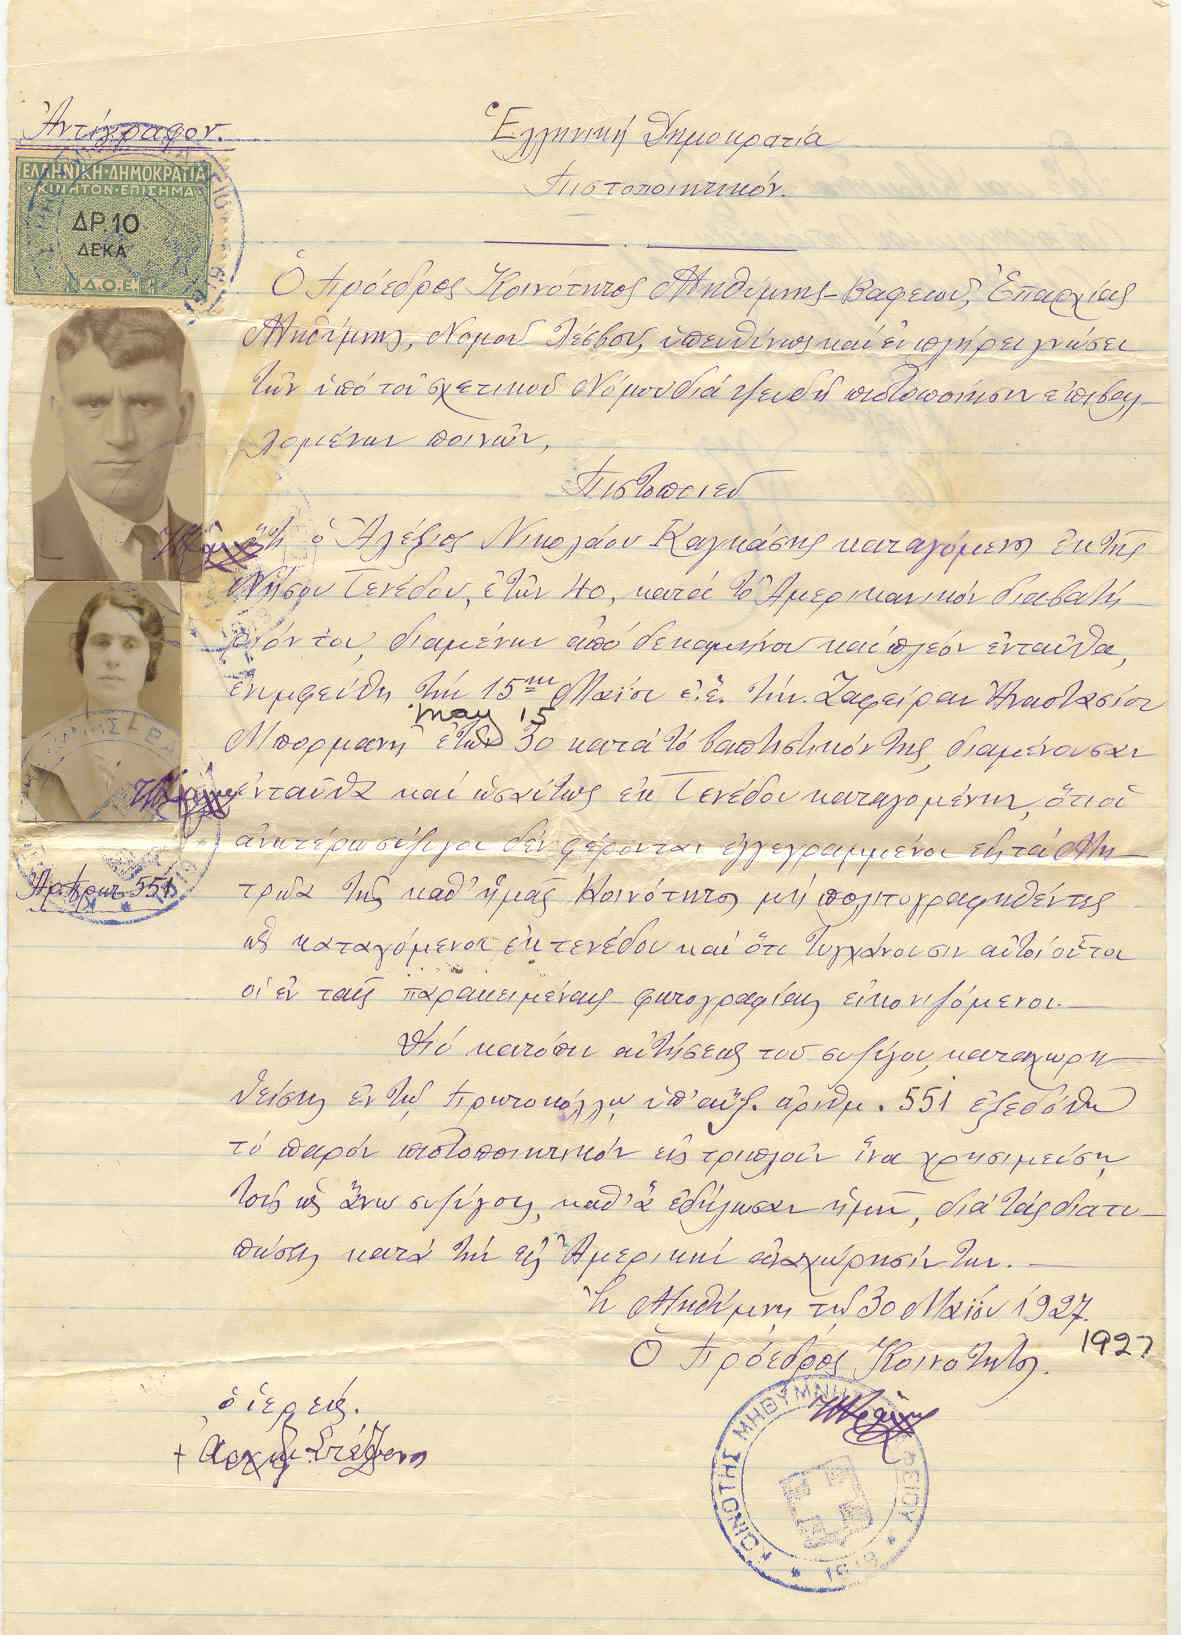 Ἀντίγραφον.
ΕΛΛΗΝΙΚΗ·ΔΗΜΟΚΡΑΤΙΑ
ΚΙΝΗΤΟΝ·ΕΠΙΣΗΜΑ
ΔΡ.10
ΔΕΚΑ
Δ.Ο.Ε.
Ἑλληνική Δημοκρατία
Πιστοποιητικόν.
Ὁ Πρόεδρος Κοινότητος Μηθύμνης-Βαφειοῦ, Ἐπαρχίας
Μηθύμνης, Νομοῦ Λέσβου, ὑπευθύνως καί ἐν πλήρει γνώσει
τῶν ὑπό τοῦ σχετικοῦ Νόμου διά ψευδῆ πιστοποίησιν ἐπιβαλ-
λομένων ποινῶν,
Πιστοποιεῖ
ὅτι ὁ Ἀλέξιος Νικολάου Καγκάσης καταγόμενος ἐκ τῆς
Νήσου Τενέδου, ἐτῶν 40, κατά τό Ἀμερικανικόν διαβατή-
ριόν του, διαμένων ἀπό δεκαμήνου καί πλέον ἐνταῦθα,
ἐνυμφεύθη τήν 15ην Μαΐου ἐ.ἔ. τήν Ζαφείραν Ἀναστασίου
may 15
Μπορμανῆ ἐτῶν 30 κατά τό βαπτιστικόν της, διαμένουσαν
ἐνταῦθα καί ὡσαύτως ἐκ Τενέδου καταγομένην, ὅτι οἱ
ἀνωτέρω σύζυγοι δέν φέρονται ἐγγεγραμμένοι εἰς τά Μη-
τρῷα τῆς καθ' ἡμᾶς Κοινότητος μή πολιτογραφηθέντες
ὡς καταγόμενοι ἐκ Τενέδου καί ὅτι τυγχάνουσιν αὐτοί οὗτοι
οἱ ἐν ταῖς παρακειμέναις φωτογραφίαις εἰκονιζόμενοι.-
Ἀρ. πρωτ. 551
Διό κατόπιν αἰτήσεως τοῦ συζύγου, καταχωρη-
θείσης ἐν τῷ Πρωτοκόλλῳ ὑπ' αὔξ. ἀριθμ. 551 ἐξεδόθη
τό παρόν πιστοποιητικόν εἰς τριπλοῦν ἵνα χρησιμεύσῃ
τοῖς ὡς ἄνω συζύγοις, καθ' ἅ ἐδήλωσαν ἡμῖν, διά τάς διατυ-
πώσεις κατά τήν εἰς Ἀμερικήν ἀναχώρησίν των.-
Ἐν Μηθύμνῃ τῇ 30 Μαΐου 1927.
1927
Ὁ Πρόεδρος Κοινότητος.
ὁ ἱερεύς.
ΚΟΙΝΟΤΗΣ ΜΗΘΥΜΝΗΣ
1919